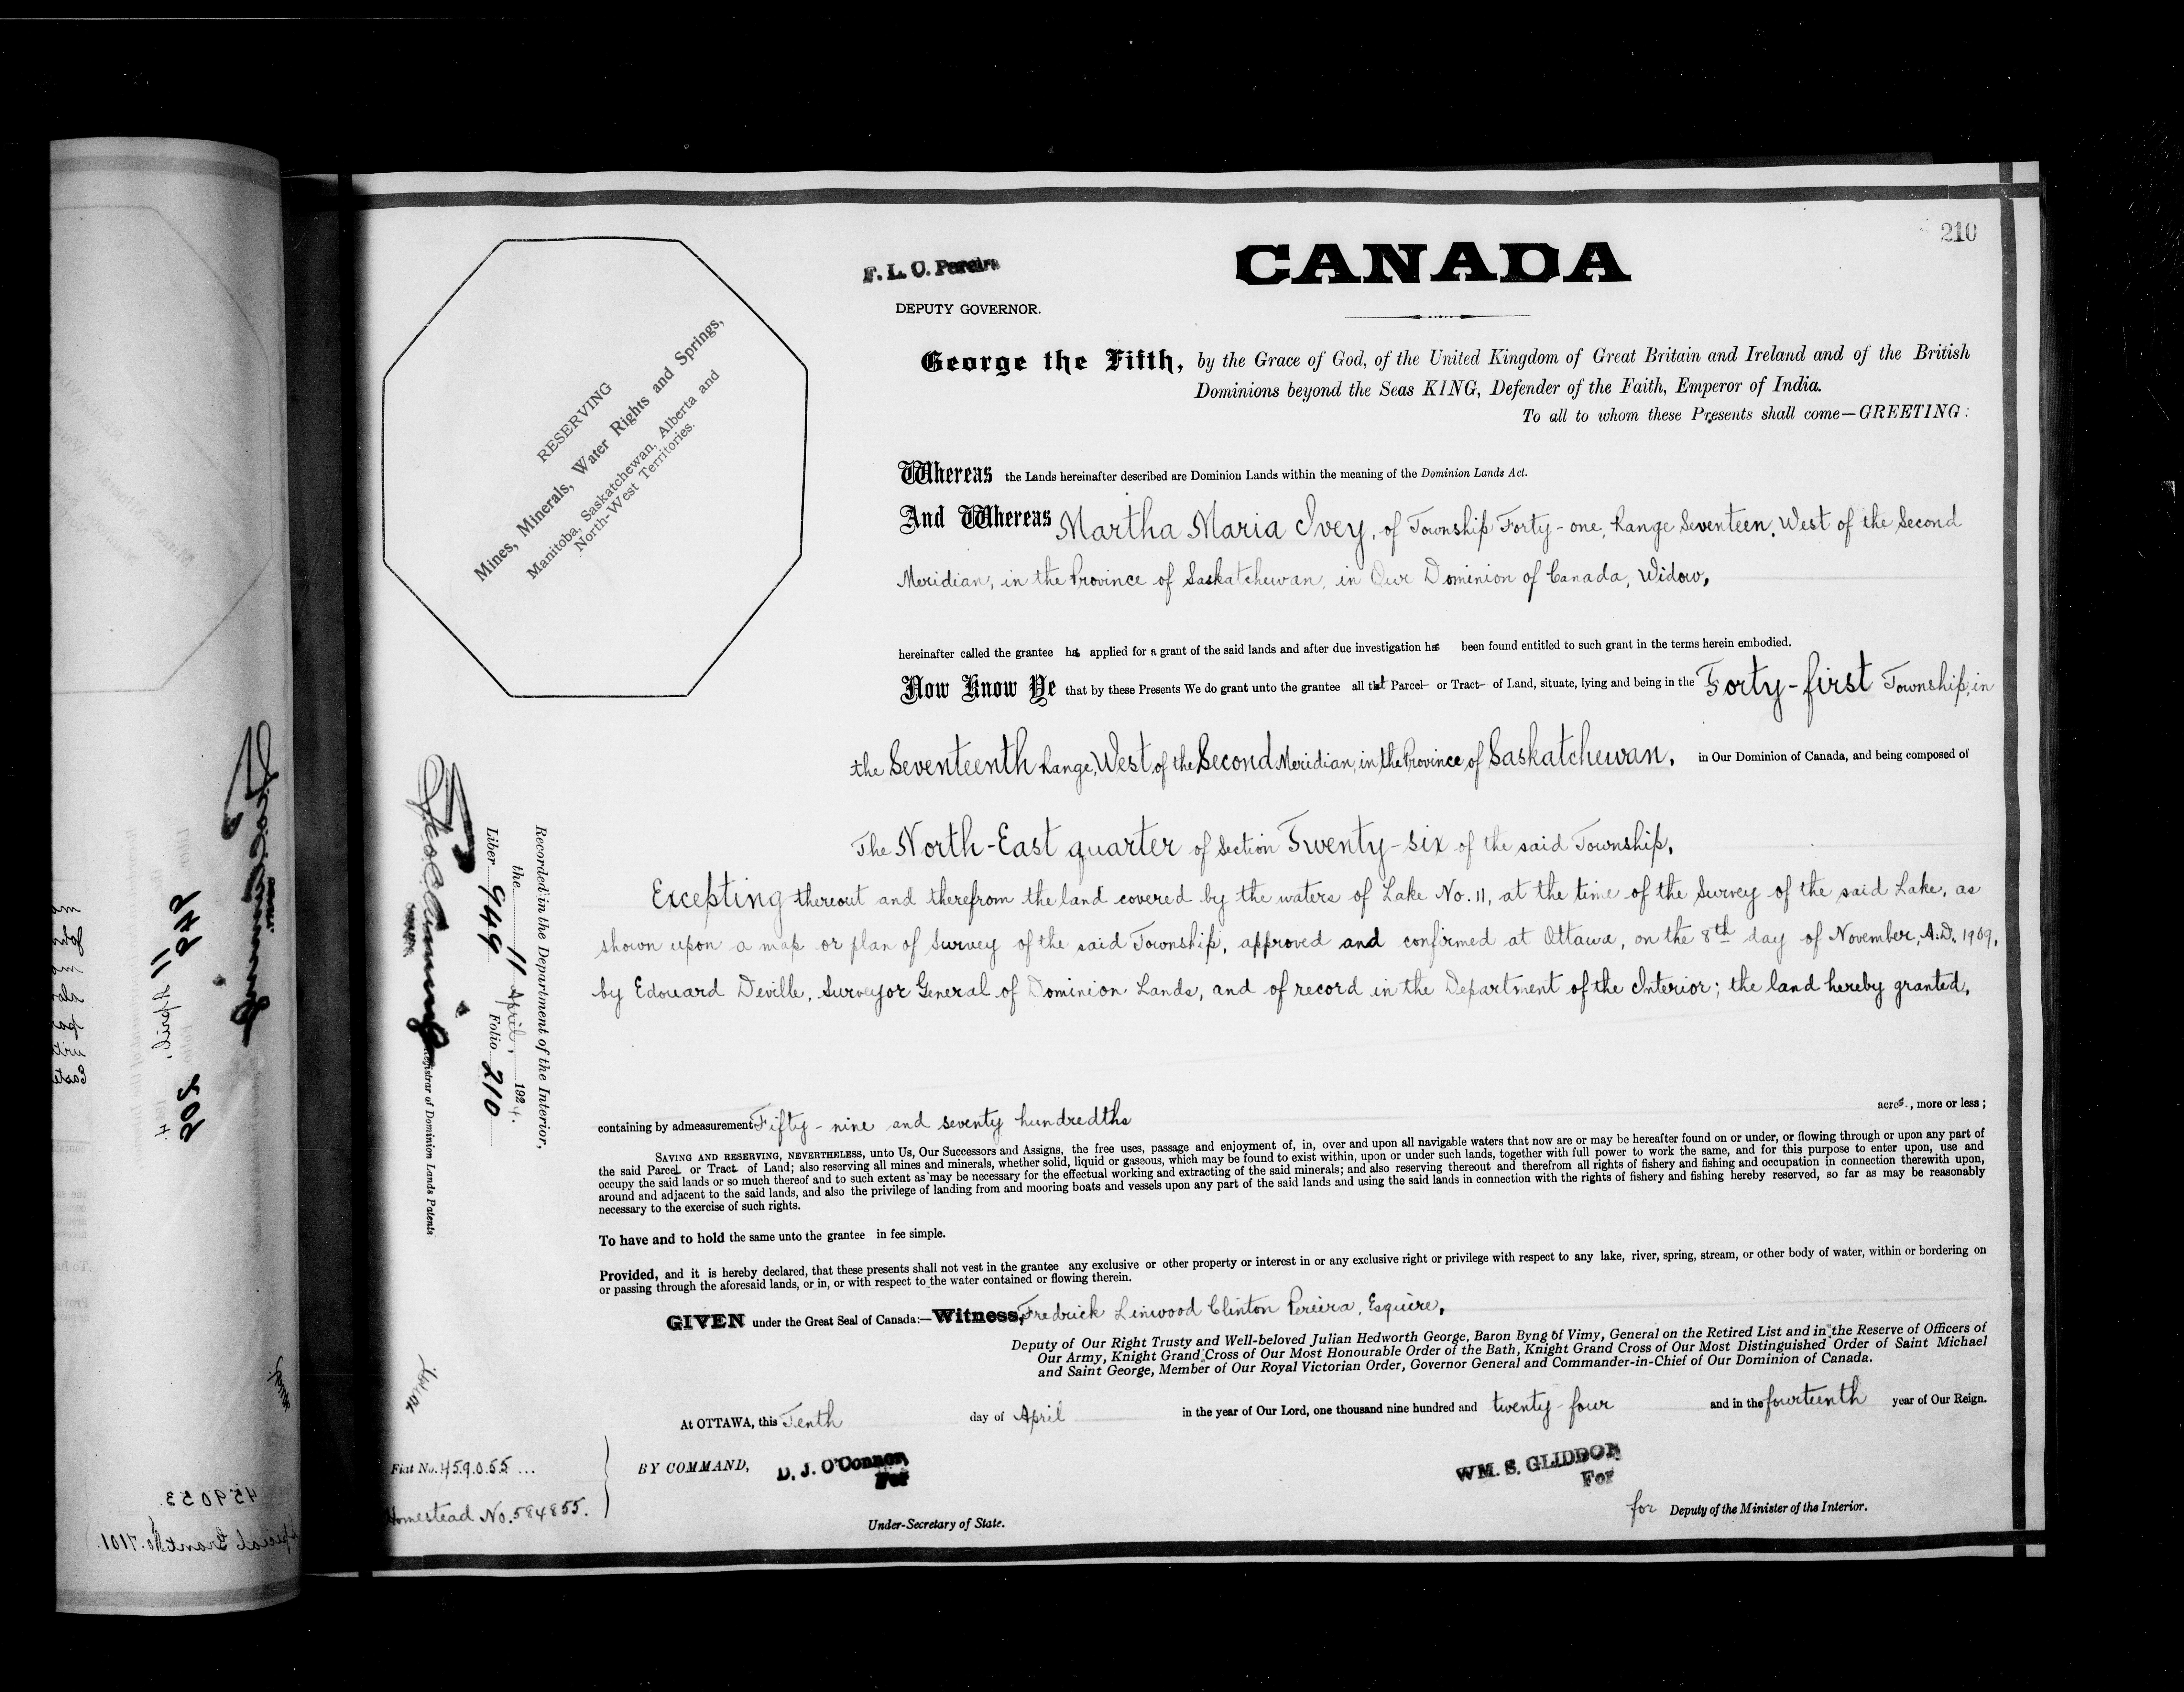 210
F. L. C. Pereira
CANADA
DEPUTY GOVERNOR.
RESERVING
Mines, Minerals, Water Rights and Springs,
Manitoba, Saskatchewan, Alberta and
North-West Territories.
George the Fifth, by the Grace of God, of the United Kingdom of Great Britain and Ireland and of the British
Dominions beyond the Seas KING, Defender of the Faith, Emperor of India.
To all to whom these Presents shall come—GREETING:
Whereas the Lands hereinafter described are Dominion Lands within the meaning of the Dominion Lands Act.
And Whereas Martha Maria Ivey, of Township Forty-one, Range Seventeen, West of the Second
Meridian, in the Province of Saskatchewan, in Our Dominion of Canada, Widow,
hereinafter called the grantee has applied for a grant of the said lands and after due investigation has been found entitled to such grant in the terms herein embodied.
Now Know Ye that by these Presents We do grant unto the grantee all that Parcel or Tract of Land, situate, lying and being in the Forty-first Township, in
the Seventeenth Range, West of the Second Meridian, in the Province of Saskatchewan, in Our Dominion of Canada, and being composed of
The North-East quarter of Section Twenty-six of the said Township,
Excepting thereout and therefrom the land covered by the waters of Lake No. 11, at the time of the Survey of the said Lake, as
shown upon a map or plan of Survey of the said Township, approved and confirmed at Ottawa, on the 8th day of November, A.D. 1909,
by Edouard Deville, Surveyor General of Dominion Lands, and of record in the Department of the Interior; the land hereby granted,
acres., more or less;
containing by admeasurement Fifty-nine and seventy hundredths
SAVING AND RESERVING, NEVERTHELESS, unto Us, Our Successors and Assigns, the free uses, passage and enjoyment of, in, over and upon all navigable waters that now are or may be hereafter found on or under, or flowing through or upon any part of
the said Parcel or Tract of Land; also reserving all mines and minerals, whether solid, liquid or gaseous, which may be found to exist within, upon or under such lands, together with full power to work the same, and for this purpose to enter upon, use and
occupy the said lands or so much thereof and to such extent as may be necessary for the effectual working and extracting of the said minerals; and also reserving thereout and therefrom all rights of fishery and fishing and occupation in connection therewith upon,
around and adjacent to the said lands, and also the privilege of landing from and mooring boats and vessels upon any part of the said lands and using the said lands in connection with the rights of fishery and fishing hereby reserved, so far as may be reasonably
necessary to the exercise of such rights.
To have and to hold the same unto the grantee in fee simple.
Provided, and it is hereby declared, that these presents shall not vest in the grantee any exclusive or other property or interest in or any exclusive right or privilege with respect to any lake, river, spring, stream, or other body of water, within or bordering on
or passing through the aforesaid lands, or in, or with respect to the water contained or flowing therein.
GIVEN under the Great Seal of Canada:—Witness, Fredrick Linwood Clinton Pereira, Esquire,
Deputy of Our Right Trusty and Well-beloved Julian Hedworth George, Baron Byng of Vimy, General on the Retired List and in the Reserve of Officers of
Our Army, Knight Grand Cross of Our Most Honourable Order of the Bath, Knight Grand Cross of Our Most Distinguished Order of Saint Michael
and Saint George, Member of Our Royal Victorian Order, Governor General and Commander-in-Chief of Our Dominion of Canada.
At OTTAWA, this Tenth day of April in the year of Our Lord, one thousand nine hundred and twenty-four and in the fourteenth year of Our Reign.
BY COMMAND, D. J. O'Connor
For
WM. S. GLIDDON
For
Under-Secretary of State.
for Deputy of the Minister of the Interior.
Fiat No. 459055
Homestead No. 584855.
Recorded in the Department of the Interior,
the 11 April, 1924.
Liber 949 Folio 210
Registrar of Dominion Lands Patents
949
11 April,
202
459053
Special Grant No. 7101.